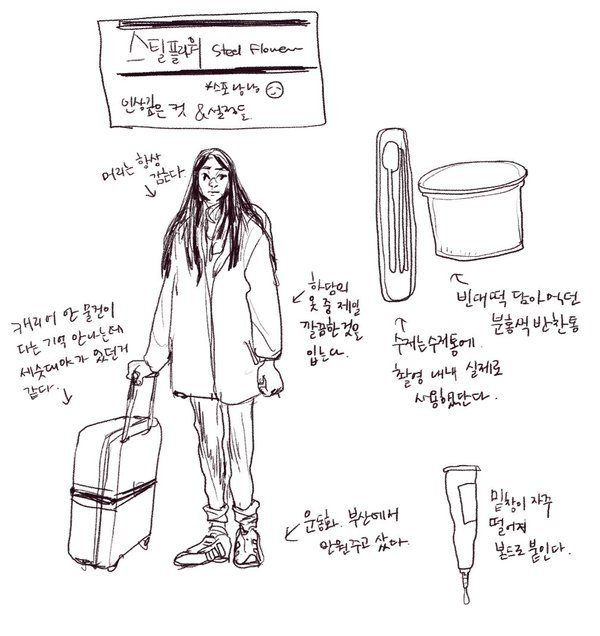 스틸플라워 Steel Flower
*스포 낭낭
인상깊은 컷 & 설정들
머리는 항상
감는다.
하담의
옷 중 제일
깔끔한 것을
입는다.
캐리어 안 물건이
다는 기억 안나는데
세숫대야가 있던거
같다.
운동화. 부산에서
만원주고 샀다.
빈대떡 담아 먹던
분홍색 반찬통
수저는 수저통에.
촬영 내내 실제로
사용했단다.
밑창이 자꾸
떨어져
본드로 붙인다.